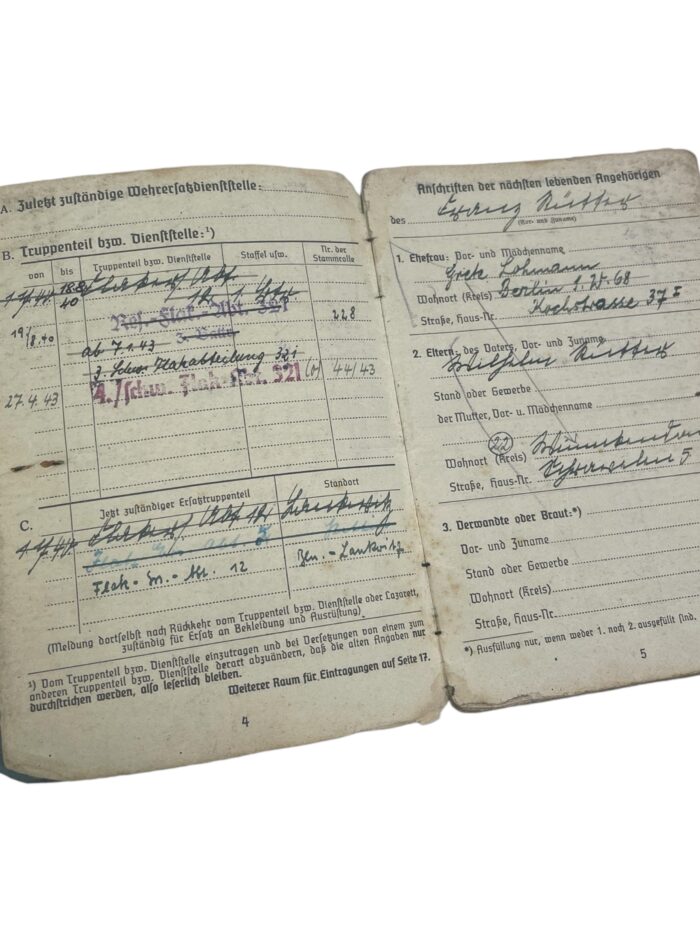 A. Zuletzt zuständige Wehrersatzdienststelle:
B. Truppenteil bzw. Dienststelle:¹)
von bis Truppenteil bzw. Dienststelle Staffel usw. Nr. der Stammrolle
40
19/8.40 Res.-Flak.-Abt. 321 228
ab 7.1.43
3. Schw. Flakabteilung 321
27.4.43 4./schw. Flak-Abt. 321 (o) 44/43
C. Jetzt zuständiger Ersatztruppenteil Standort
Lankwitz
Flak-Ers.-Abt. 12 Bln.-Lankwitz
(Meldung dortselbst nach Rückkehr vom Truppenteil bzw. Dienststelle oder Lazarett,
zuständig für Ersatz an Bekleidung und Ausrüstung)
¹) Vom Truppenteil bzw. Dienststelle einzutragen und bei Versetzungen von einem zum
anderen Truppenteil bzw. Dienststelle derart abzuändern, daß die alten Angaben nur
durchstrichen werden, also leserlich bleiben.
Weiterer Raum für Eintragungen auf Seite 17.
4
Anschriften der nächsten lebenden Angehörigen
des Franz
(Vor- und Zuname)
1. Ehefrau: Vor- und Mädchenname
Grete Lohmann
Wohnort (Kreis) Berlin S.W. 68
Straße, Haus-Nr. Kochstrasse 37 I
2. Eltern: des Vaters, Vor- und Zuname
Wilhelm
Stand oder Gewerbe
der Mutter, Vor- u. Mädchenname
(22)
Wohnort (Kreis)
Straße, Haus-Nr. 5
3. Verwandte oder Braut:*)
Vor- und Zuname
Stand oder Gewerbe
Wohnort (Kreis)
Straße, Haus-Nr.
*) Ausfüllung nur, wenn weder 1. noch 2. ausgefüllt sind.
5